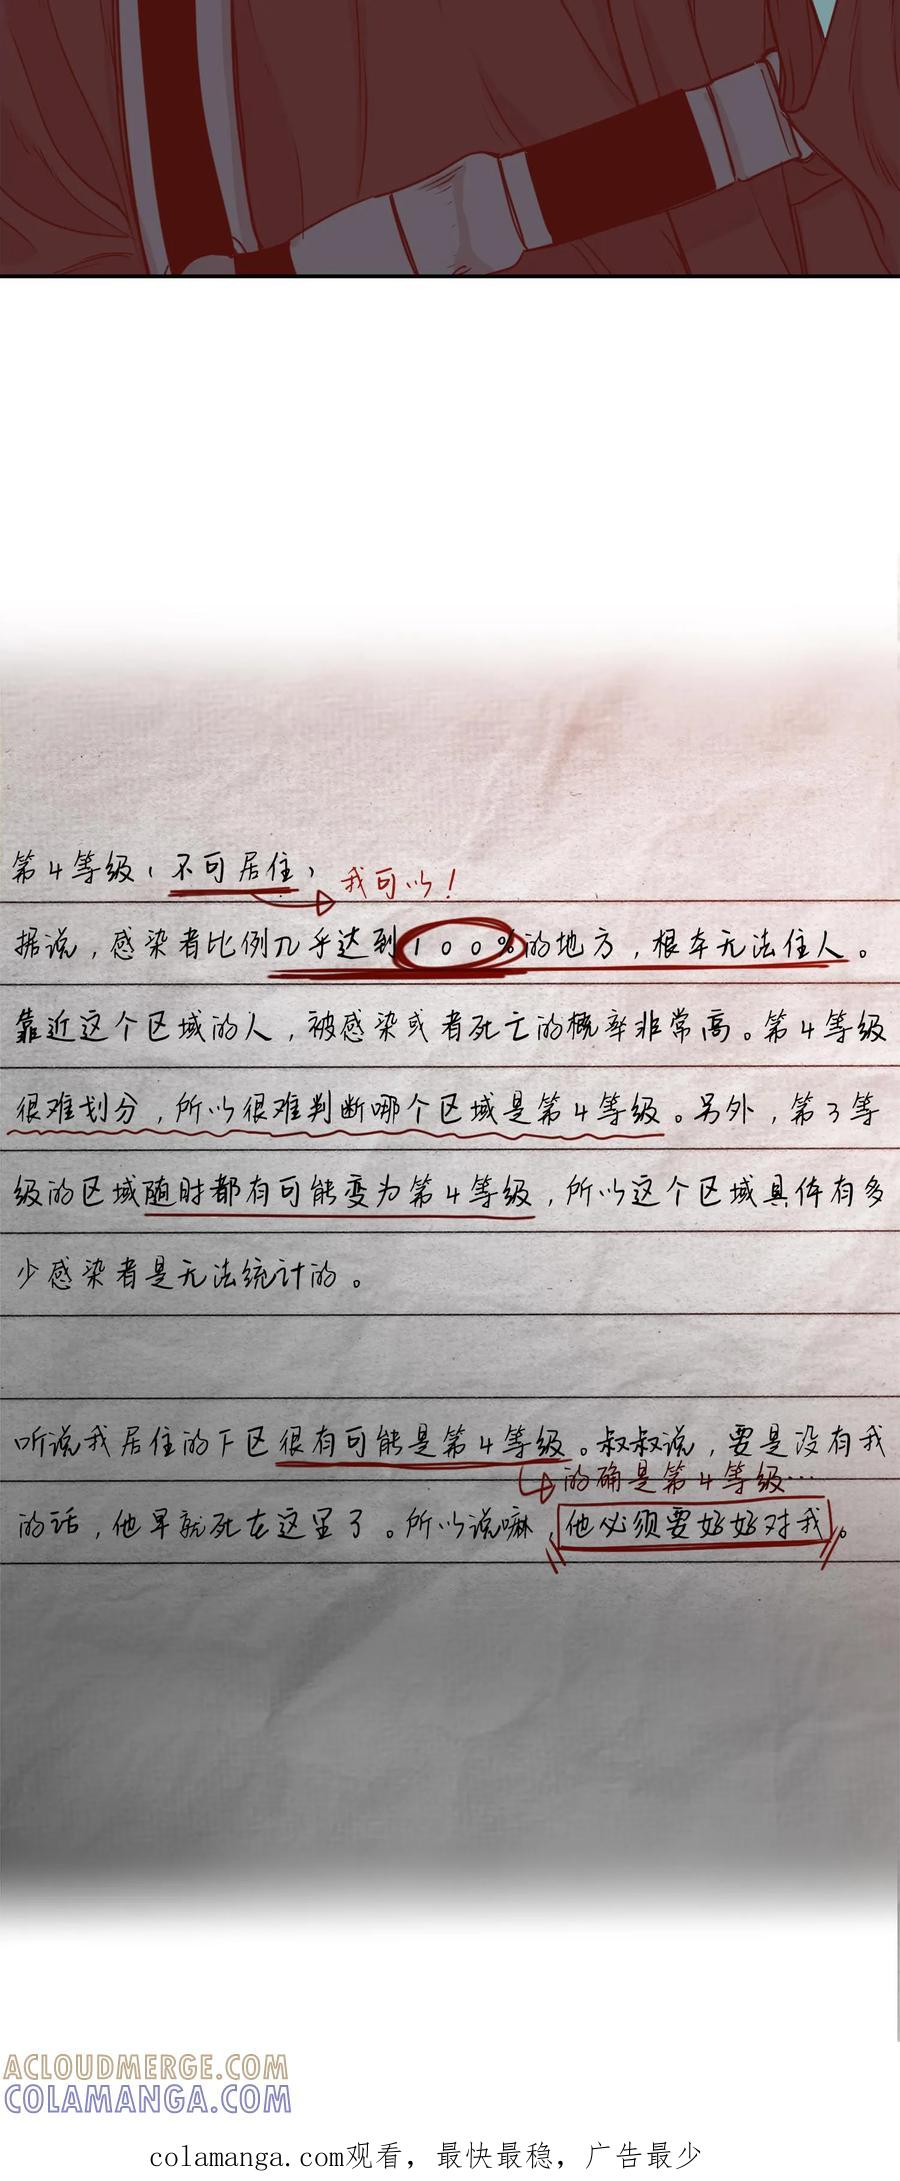 第4等级（不可居住）
我可以！
据说，感染者比例几乎达到100%的地方，根本无法住人。
靠近这个区域的人，被感染或者死亡的概率非常高。第4等级
很难划分，所以很难判断哪个区域是第4等级。另外，第3等
级的区域随时都有可能变为第4等级，所以这个区域具体有多
少感染者是无法统计的。
听说我居住的下区很有可能是第4等级。叔叔说，要是没有我
的确是第4等级…
的话，他早就死在这里了。所以说嘛，他必须要好好对我。
ACLOUDMERGE.COM
COLAMANGA.COM
colamanga.com观看，最快最稳，广告最少